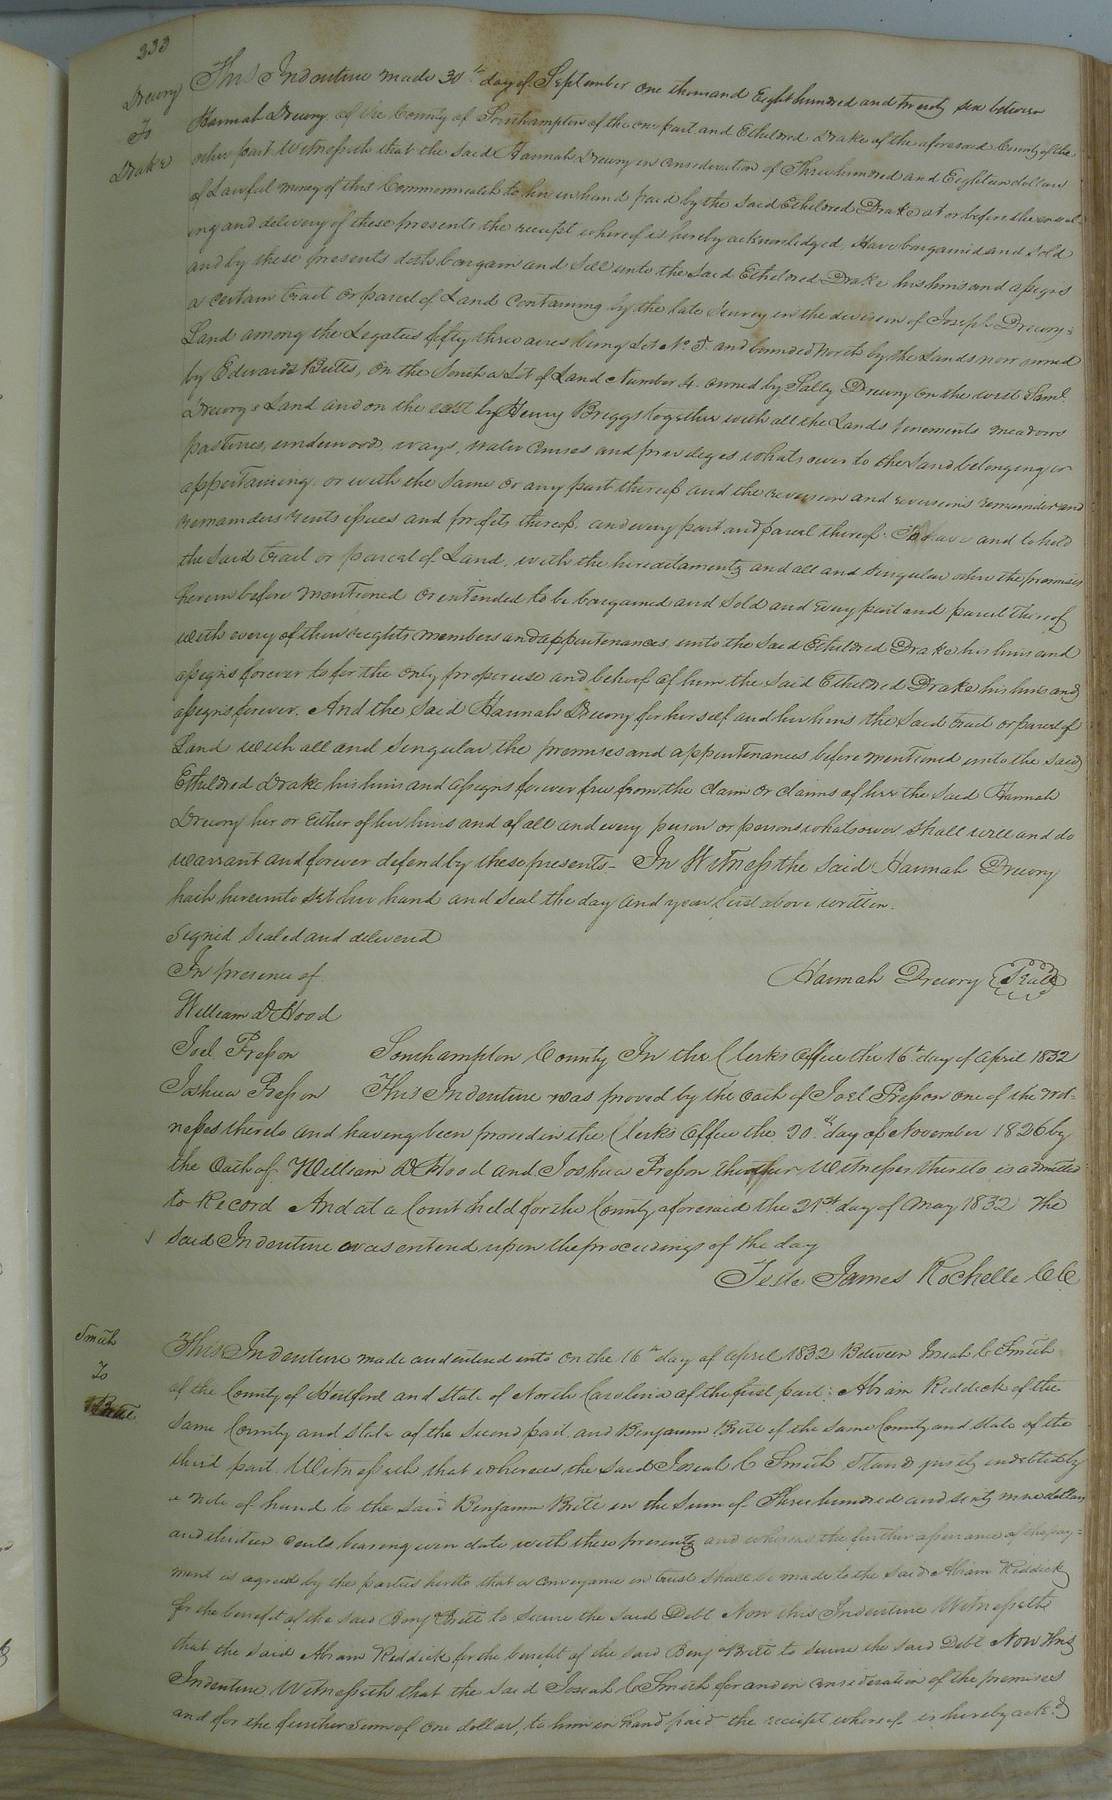 333
Drewry
To
Drake
This Indenture made 30th day of September one thousand Eight hundred and twenty six between
Hannah Drewry of the County of Southampton of the one part and Etheldred Drake of the aforesaid County of the
other part Witnesseth that the said Hannah Drewry in consideration of Three hundred and Eighteen dollars
of Lawful money of this Commonwealth to her in hand paid by the said Etheldred Drake at or before the enseal
ing and delivery of these presents the receipt whereof is hereby acknowledged, Have bargained and Sold
and by these presents doth bargain and Sell unto the said Etheldred Drake his heirs and assigns
a certain tract or parcel of Land Containing by the late Survey in the division of Joseph Drewry's
Land among the Legatees fifty three acres being Lot No. 5. and bounded North by the Lands now owned
by Edwards Butts, On the South a Lot of Land Number 4. owned by Sally Drewry On the west Saml
Drewry's Land and on the east by Henry Briggs together with all the Lands tenements meadows
pastures, underwood, ways, water Courses and priviledges whatsoever to the Land belonging or
appertaining. or with the Same or any part thereof and the reversion and reversions remainder and
remainders rents issues and profits thereof, and every part and parcel thereof. To have and to hold
the Said tract or parcel of Land, with the hereditaments and all and Singular other the premises
herein before mentioned or intended to be bargained and Sold and every part and parcel thereof
with every of their rights members and appurtenances unto the said Etheldred Drake his heirs and
assigns forever to for the only proper use and behoof of him the Said Etheldred Drake his heirs and
assigns forever. And the Said Hannah Drewry for herself and her heirs the Said tract or parcel of
Land with all and Singular the premises and appurtenances before mentioned unto the said
Etheldred Drake his heirs and assigns forever free from the claim or claims of her the Said Hannah
Drewry her or either of her heirs and of all and every person or persons whatsoever Shall will and do
warrant and forever defend by these presents– In Witness the said Hannah Drewry
hath hereunto set her hand and seal the day and year first above written.
Signed Sealed and delivered
In presence of
Hannah Drewry Seal
William D Hood
Joel Presson
Southampton County In the Clerks Office the 16th day of April 1832
Joshua Presson
This Indenture was proved by the oath of Joel Presson one of the wit-
nesses thereto and having been proved in the Clerks Office the 20th day of November 1826 by
the Oath of William D Hood and Joshua Presson the other Witnesses thereto is admitted
to Record And at a Court held for the County aforesaid the 21st day of May 1832 The
Said Indenture was entered upon the proceedings of the day
Teste James Rochelle CC
Smith
To
Brett
This Indenture made and entered into On the 16th day of April 1832 Between Josiah C Smith
of the County of Hertford and State of North Carolina of the first part: Abram Reddick of the
Same County and State of the Second part and Benjamin Brett of the Same County and State of the
third part Witnesseth that whereas the Said Josiah C Smith Stand justly indebted by
a note of hand to the said Benjamin Brett in the Sum of Three hundred and sixty nine dollars
and thirteen cents bearing even date with these presents and whereas the further assurance of the pay-
ment is agreed by the parties hereto that a conveyance in trust Shall be made to the said Abram Reddick
for the benefit of the Said Benj Brett to Secure the Said Debt Now this Indenture Witnesseth
that the said Abram Reddick for the benefit of the said Benj Brett to Secure the said Debt Now This
Indenture Witnesseth that the Said Josiah C Smith for and in consideration of the premises
and for the further Sum of One dollar, to him in hand paid the receipt whereof is hereby ackd